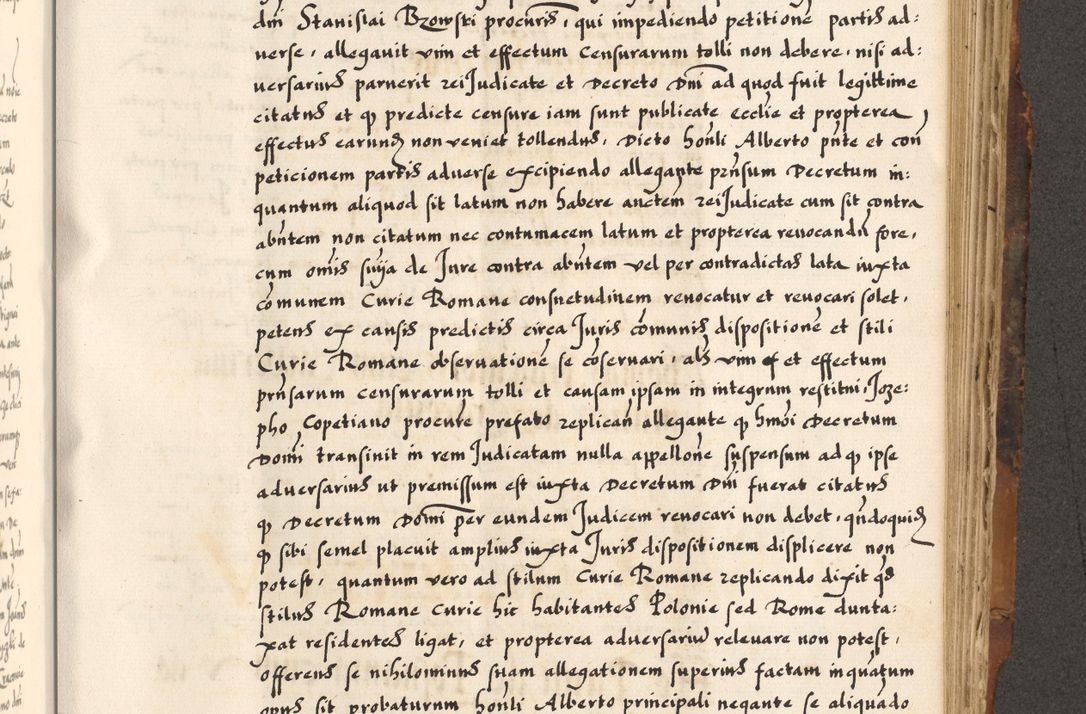 dni Stanislai Bzowski procuris, qui impediendo petitione partis ad:
uerse, allegauit vim et effectum Censurarum tolli non debere, nisi ad:
uersarius paruerit rei Judicate et Decreto Dni ad quod fuit legittime
citatus et q predicte censure iam sunt publicate ecclie et propterea
effectus earund non veniet tollendus, Dicto honli Alberto pnte et con
peticionem partis aduerse excipiendo allegante prnsum Decretum in:
quantum aliquod sit latum non habere auctem rei Judicate cum sit contra
abntem non citatum nec contumacem latum et propterea reuocandu fore,
cum omis snia de Jure contra abntem vel per contradictas lata iuxta
comunem Curie Romane consuetudinem reuocatur et reuocari solet,
petens ex causis predictis circa Juris comunis dispositione et stili
Curie Romane obseruatione se coseruari, als vim et et effectum
prnsarum censurarum tolli et causam ipsam in integrum restitui, Joze:
pho Copetiano procure prefato replican allegante q hmoi Decretum
Domi transiuit in rem Judicatam nulla appellone suspensum ad q ipse
aduersarius ut premissum est iuxta Decretum Dni fuerat citatus
q Decretum Domi per eundem Judicem reuocari non debet, qndoquid
q sibi semel placuit amplius iuxta Juris dispositionem displicere non
potest, quantum vero ad stilum Curie Romane replicando dixit qd
stilus Romane Curie hic habitantes Polonie sed Rome dunta:
xat residentes ligat, et propterea aduersariu releuare non potest,
offerens se nihilominus suam allegationem superius factam inquatum
opus sit probaturum honli Alberto principali negante se aliquado